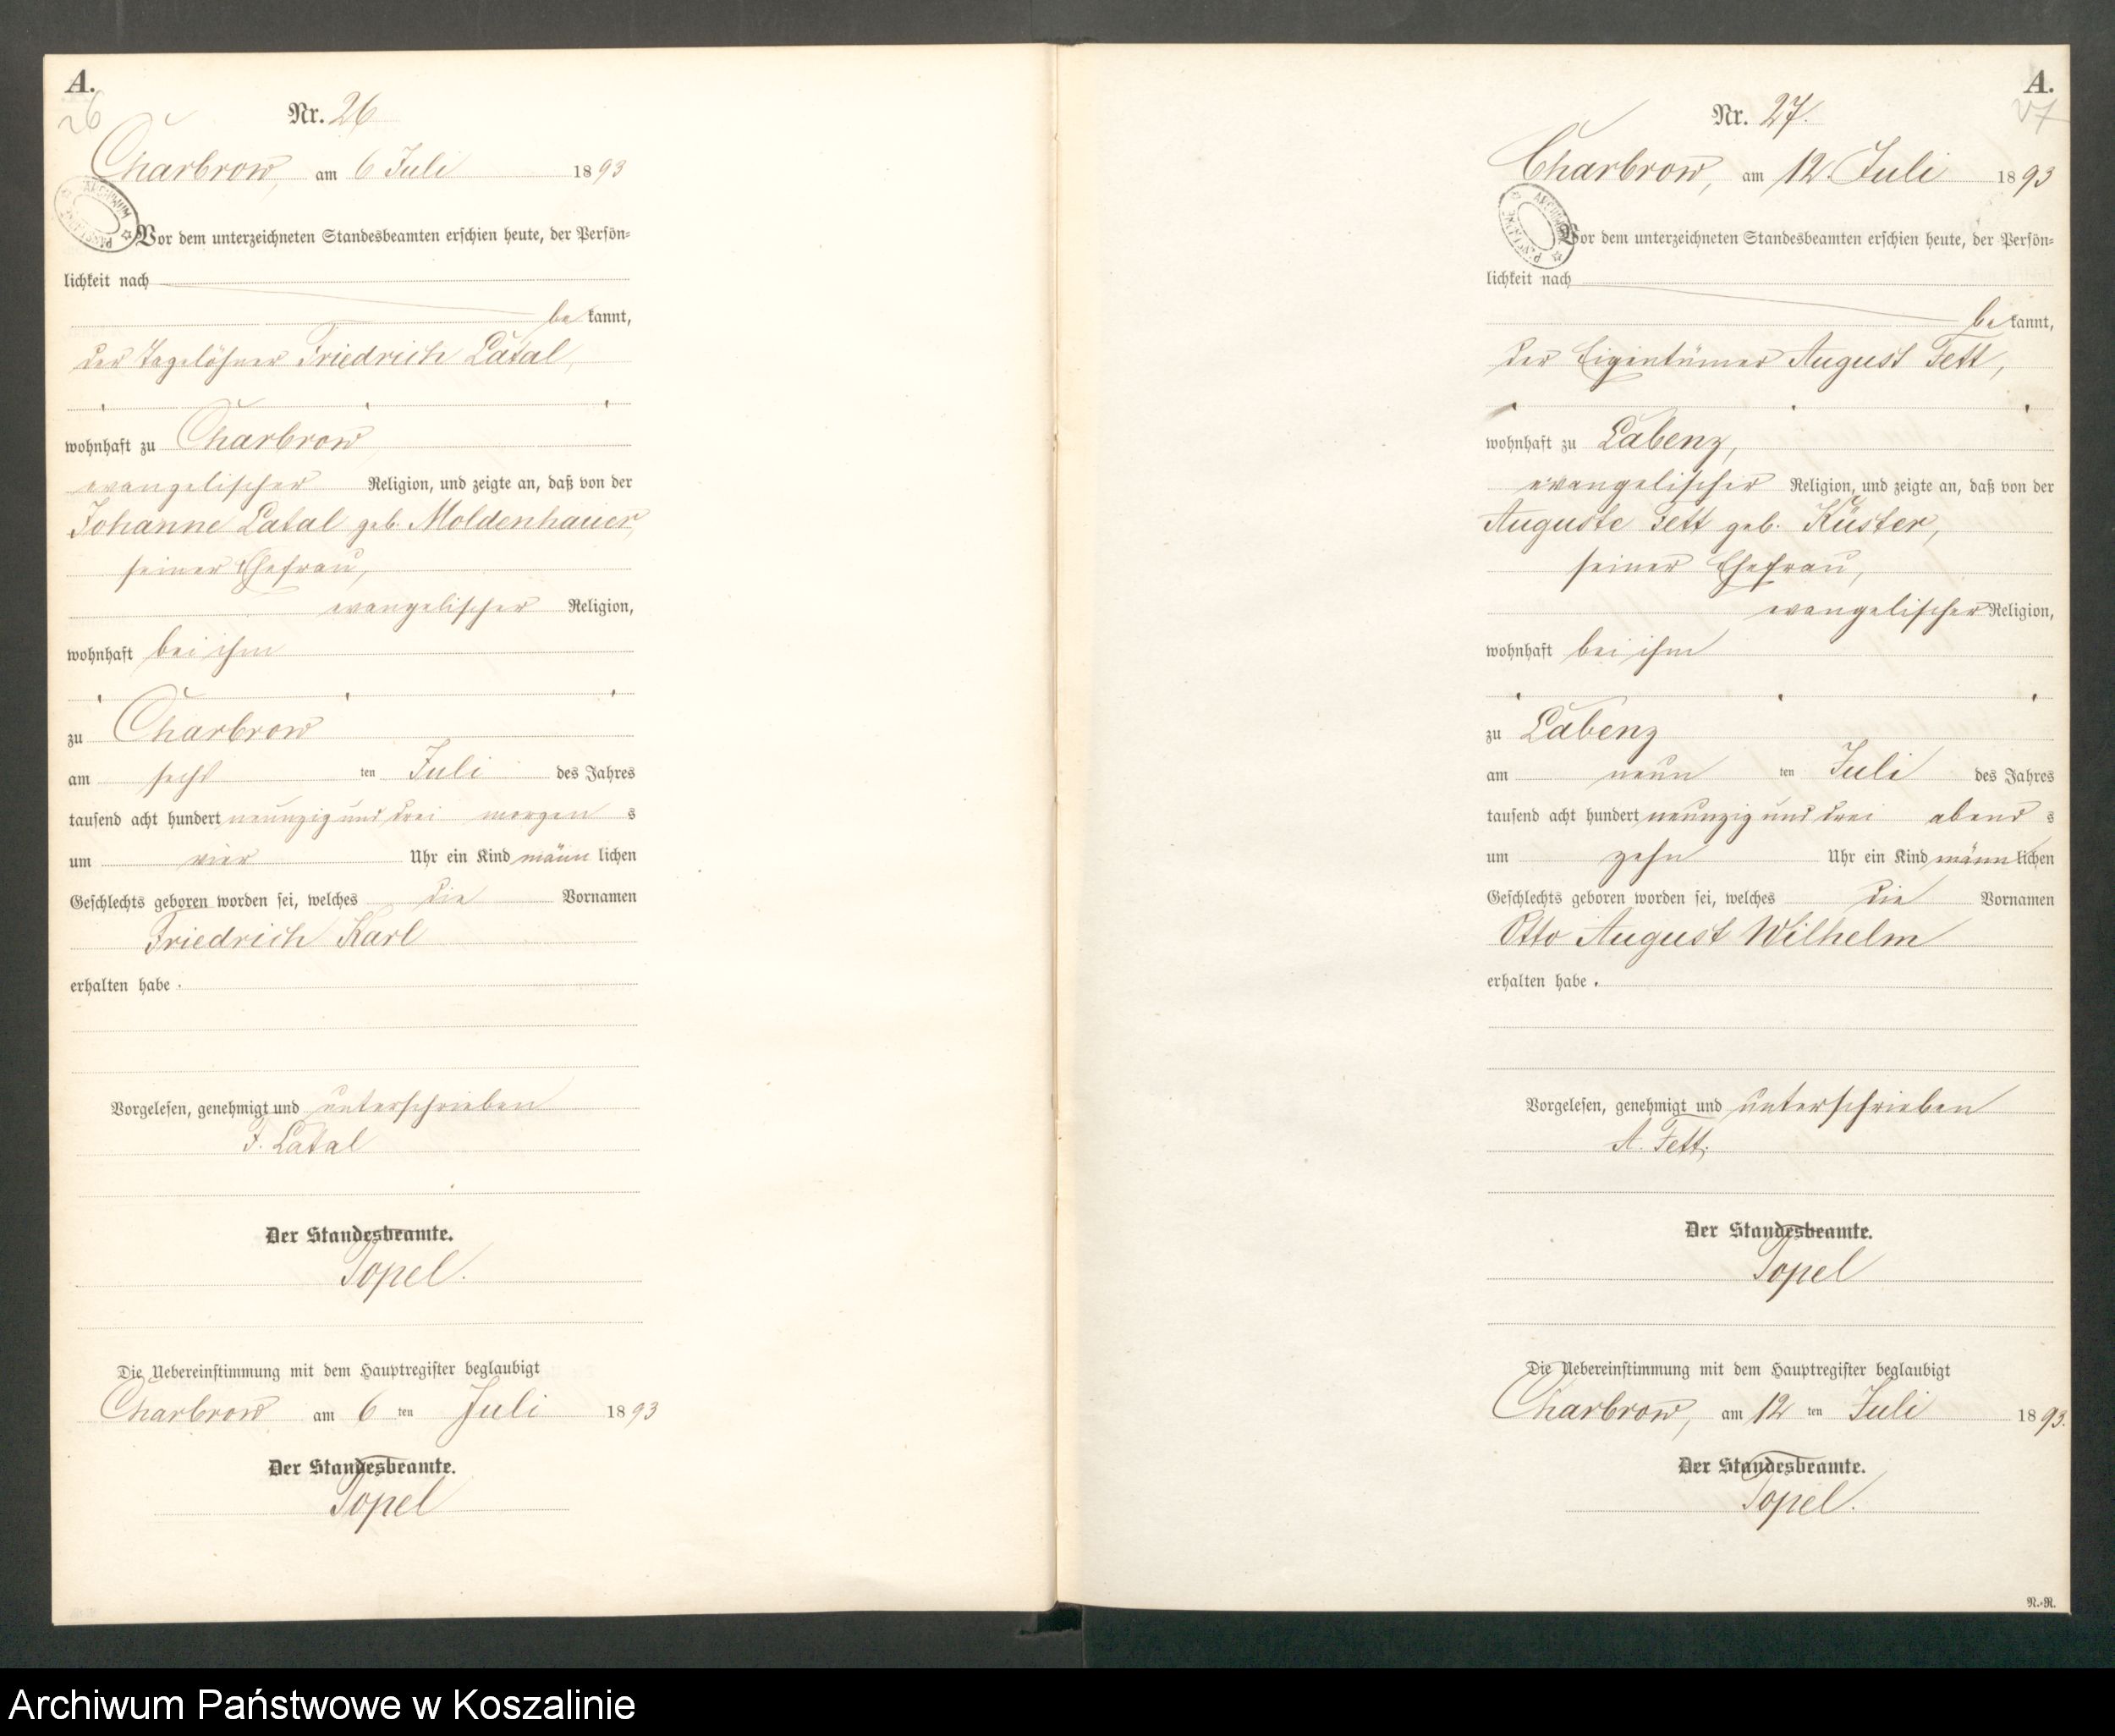 A.
26
Nr. 26
Charbrow, am 6 Juli 1893
ARCHIWUM PAŃSTWOWE
Vor dem unterzeichneten Standesbeamten erschien heute, der Persön-
lichkeit nach
be kannt,
der Tagelöhner Friedrich Latal,
wohnhaft zu Charbrow
evangelischer Religion, und zeigte an, daß von der
Johanne Latal geb. Moldenhauer,
seiner Ehefrau,
evangelischer Religion,
wohnhaft bei ihm
zu Charbrow
am sechs ten Juli des Jahres
tausend acht hundert neunzig und drei morgen s
um vier Uhr ein Kind männ lichen
Geschlechts geboren worden sei, welches die Vornamen
Friedrich Karl
erhalten habe .
Vorgelesen, genehmigt und unterschrieben
F. Latal
Der Standesbeamte.
Topel.
Die Uebereinstimmung mit dem Hauptregister beglaubigt
Charbrow am 6 ten Juli 1893
Der Standesbeamte.
Topel
A.
27
Nr. 27.
Charbrow, am 12. Juli 1893
ARCHIWUM PAŃSTWOWE
Vor dem unterzeichneten Standesbeamten erschien heute, der Persön-
lichkeit nach
be kannt,
der Eigentümer August Fett,
wohnhaft zu Labenz,
evangelischer Religion, und zeigte an, daß von der
Auguste Fett geb. Küster,
seiner Ehefrau,
evangelischer Religion,
wohnhaft bei ihm
zu Labenz
am neun ten Juli des Jahres
tausend acht hundert neunzig und drei abend s
um zehn Uhr ein Kind männ lichen
Geschlechts geboren worden sei, welches die Vornamen
Otto August Wilhelm
erhalten habe .
Vorgelesen, genehmigt und unterschrieben
A. Fett.
Der Standesbeamte.
Topel
Die Uebereinstimmung mit dem Hauptregister beglaubigt
Charbrow, am 12 ten Juli 1893.
Der Standesbeamte.
Topel.
N.-R.
Archiwum Państwowe w Koszalinie